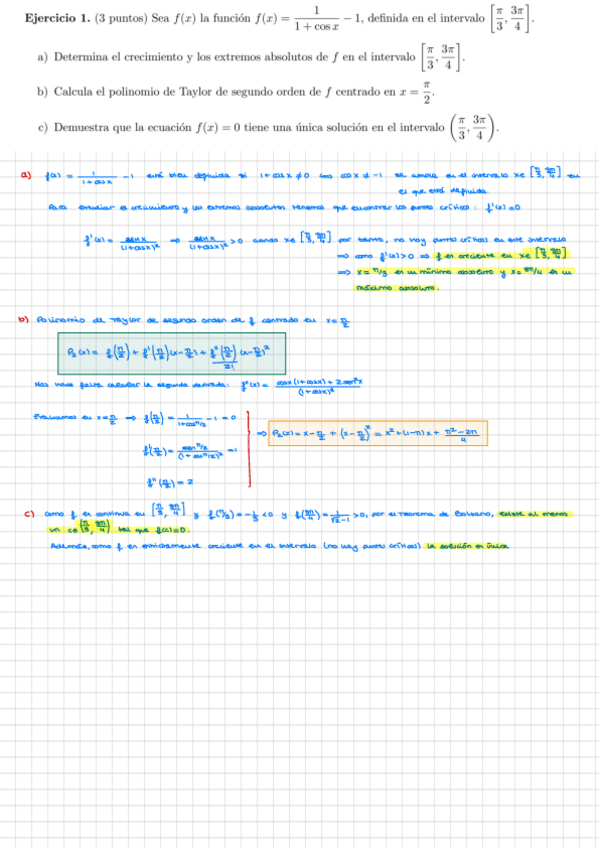 Ejercicio 1. (3 puntos) Sea f(x) la función f(x) = 1/(1 + cos x) − 1, definida en el intervalo [π/3, 3π/4].
a) Determina el crecimiento y los extremos absolutos de f en el intervalo [π/3, 3π/4].
b) Calcula el polinomio de Taylor de segundo orden de f centrado en x = π/2.
c) Demuestra que la ecuación f(x) = 0 tiene una única solución en el intervalo (π/3, 3π/4).
a) f(x) = 1/(1+cosx) −1 está bien definida si 1+cosx ≠ 0 ⟺ cosx ≠ −1 se cumple en el intervalo x∈[π/3, 3π/4] en
el que está definida.
Para estudiar el crecimiento y los extremos absolutos tenemos que encontrar los puntos críticos: f'(x)=0
f'(x) = senx/(1+cosx)² ⇒ senx/(1+cosx)² > 0 cuando x∈[π/3, 3π/4] por tanto, no hay puntos críticos en este intervalo
⇒ como f'(x)>0 ⇒ f es creciente en x∈[π/3, 3π/4]
⇒ x = π/3 es un mínimo absoluto y x = 3π/4 es un
máximo absoluto.
b) Polinomio de Taylor de segundo orden de f centrado en x = π/2
P₂(x) = f(π/2) + f'(π/2)(x−π/2) + f''(π/2)/2! (x−π/2)²
Nos hace falta calcular la segunda derivada: f''(x) = (cosx(1+cosx) + 2sen²x)/(1+cosx)³
Evaluamos en x=π/2 ⇒ f(π/2) = 1/(1+cosπ/2) −1 = 0
f'(π/2) = senπ/2/(1+cosπ/2)² = 1
f''(π/2) = 2
⇒ P₂(x) = x − π/2 + (x−π/2)² = x² + (1−π)x + (π²−2π)/4
c) Como f es continua en [π/3, 3π/4] y f(π/3) = −1/3 < 0 y f(3π/4) = 1/(√2−1) > 0, por el Teorema de Bolzano, existe al menos
un c∈(π/3, 3π/4) tal que f(c)=0.
Además, como f es estrictamente creciente en el intervalo (no hay puntos críticos) la solución es única